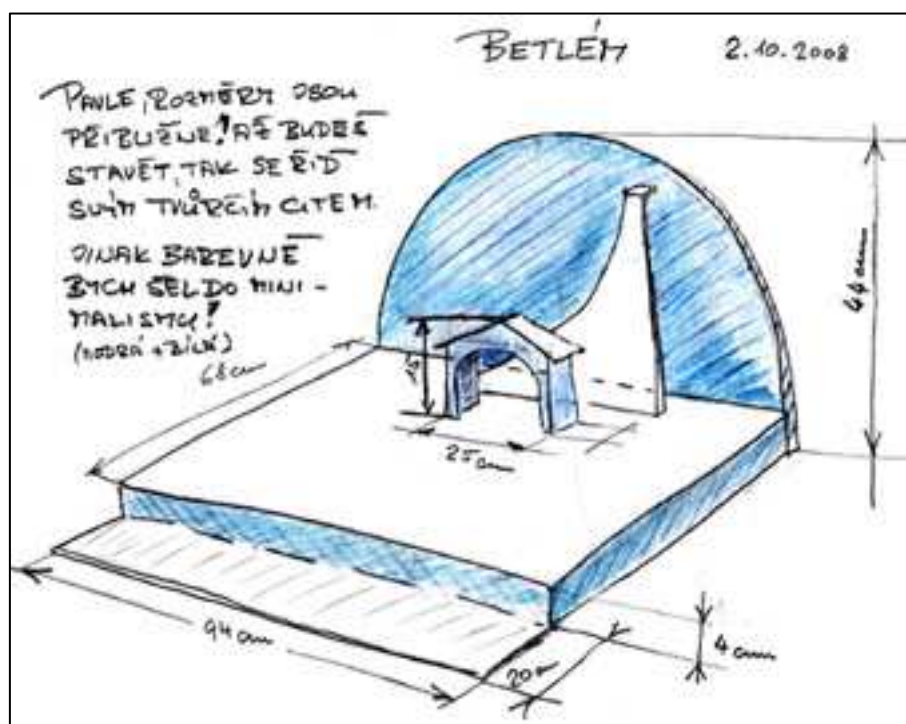 BETLÉM
2.10.2008
PAVLE, ROZMĚRY JSOU
PŘIBLIŽNÉ! AŽ BUDEŠ
STAVĚT, TAK SE ŘIĎ
SVÝM TVŮRČÍM CITEM.
JINAK BAREVNĚ
BYCH ŠEL DO MINI-
MALISMU!
(MODRÁ + BÍLÁ)
68cm
15
25cm
44cm
94cm
20
4cm